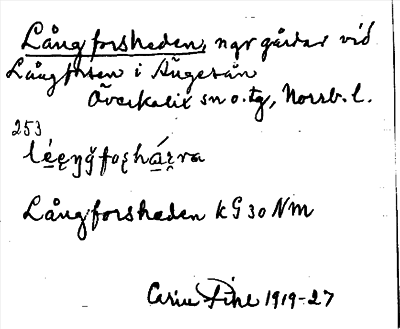 Långforsheden, ngr gårdar vid
Långforsen i Ängesån
Överkalix sn o. tg, Norrb. l.
253
Långforsheden kG30NM
Carin Pihl 1919-27